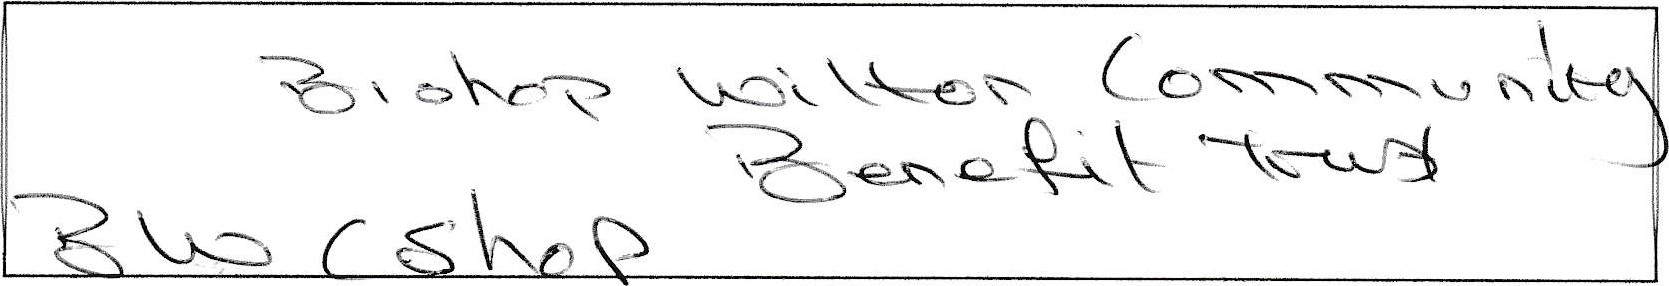 Bishop Wilton Community
Benefit Trust
BW C Shop